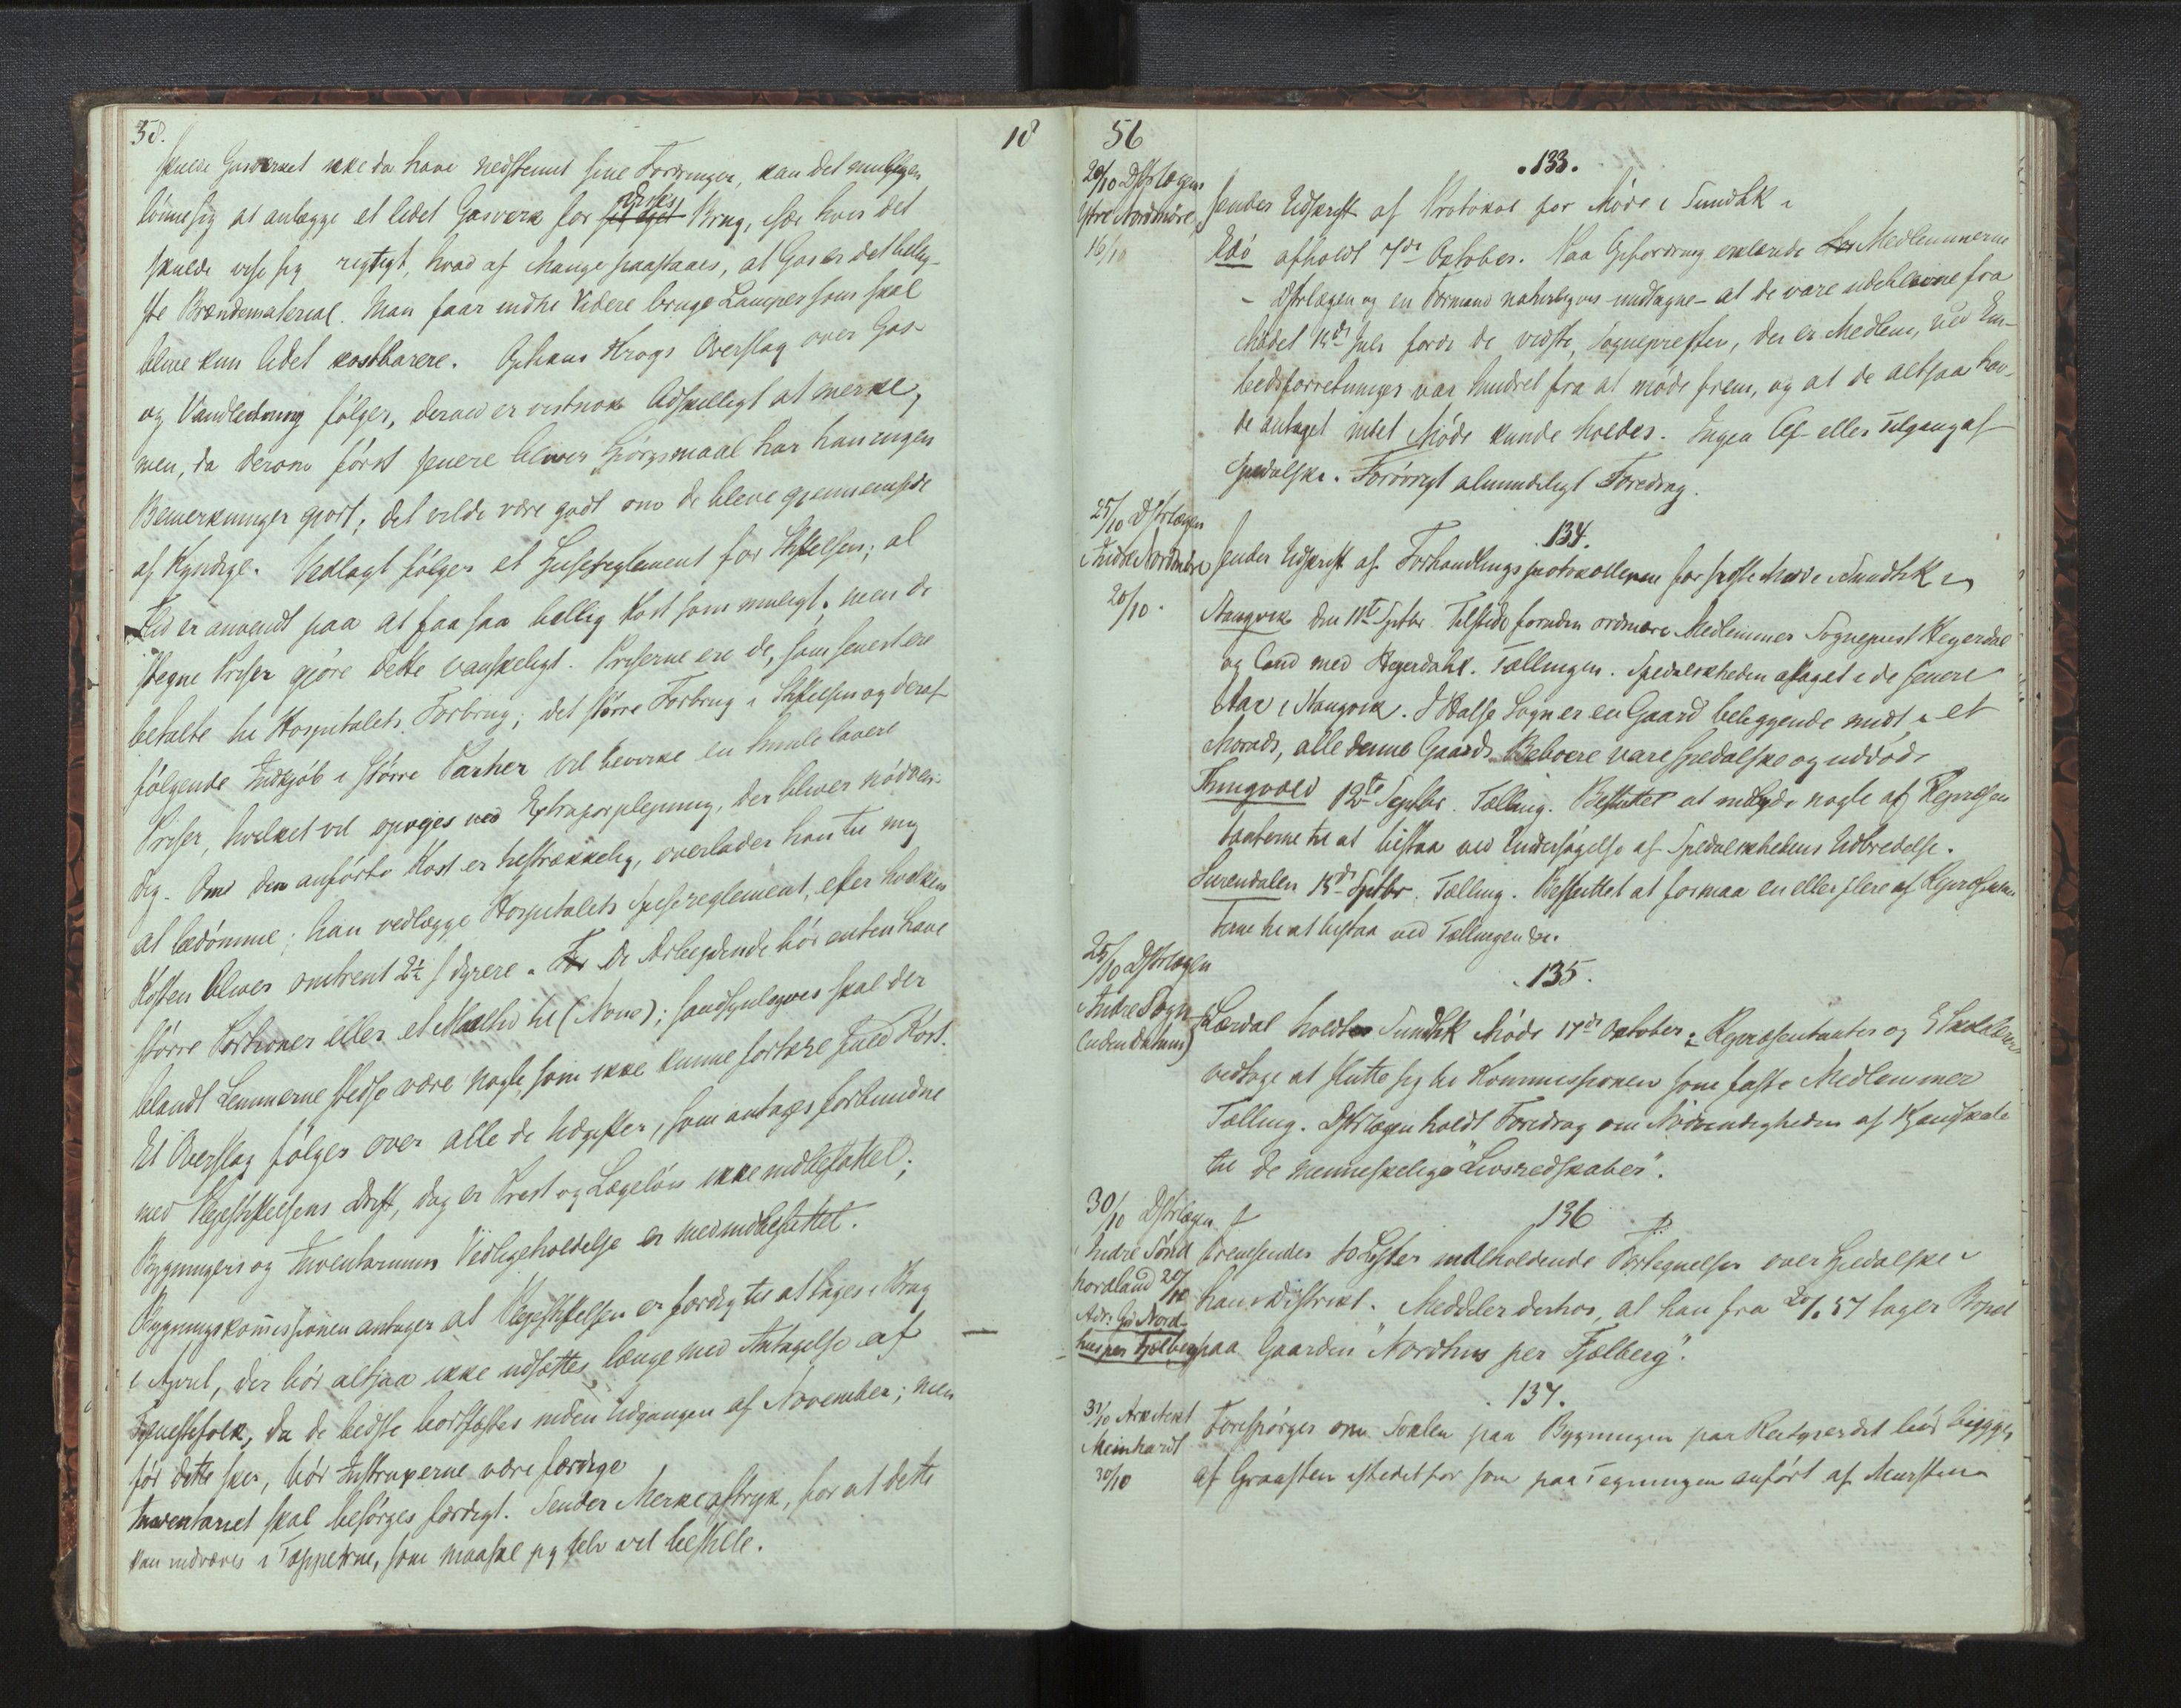 38.
18
skulde Gasverket ikke da have nedstemt sine Fordringer, kan det muligen
lönne sig at anlægge et lidet Gasverk for eget Brug, især hvis det
skulde vise sig rigtigt, hvad af Mange paastaaes, at Gas er det billig-
ste Brændemateriel. Man faar indtil Videre bruge Lamper som skal
blive kun lidet kostbarere. Krogs Overslag over Gas-
og Vandledning følger, derved er vistnok Adskilligt at merke,
men, da derom först senere bliver Spörgsmaal har han ingen
Bemerkninger gjort; det vilde være godt om de bleve gjennemsete
af Kyndige. Vedlagt følger et Spisereglement for Stiftelsen; al
Flid er anvendt paa at faa saa billig Kost som muligt, men de
stegne Priser gjöre dette vanskeligt. Priserne ere de, som senest ere
betalte til Hospitalets Forbrug; det större Forbrug i Stiftelsen og deraf
følgende Indkjöb i större Partier vil bevirke en Smule lavere
Priser, hvilket vil opveies ved Extraforpleining, der bliver nödven-
dig. Om den anförte Kost er tilstrækkelig, overlader han til mig
at bedömme; han vedlægge Hospitalets Spisereglement, efter hvilken
Kosten bliver omtrent 2½ s dyrere. De Arbeidende bör enten have
större Portioner eller et Maaltid til (Non); sandsynligvis skal der
blandt Lemmerne stedse være nogle, som ikke kunne fortære fuld Kost.
Et Overslag følger over alle de Udgifter, som antages forbundne
med Pleiestiftelsens Drift, dog er Prest og Lægelön ikke indbefattet;
Bygningers og Inventariums Vedligeholdelse er med indbefattet.
Bygningskommissionen antager at Pleiestiftelsen er færdig til at tages i Brug
i April, der bör altsaa ikke udsættes længe med Antagelse af
Tjenestefolk, da de bedste bortfæstes inden Udgangen af November; men
för dette sker, bör Instruxerne være færdige
Inventariet skal besörges færdigt. Sender Merkeaftryk, for at dette
kan indvæves i Tæpperne, som maaske jeg selv vil bestille.
56
.133.
20/10 Dstrlægen
Ytre Nordmöre
16/10
sender Udskrift af Protokol for Möde i Sundhk i
Edö afholdt 7de Oktober. Paa Opfordring erklærede Medlemmerne
- Dstrlægen og en Formand naturligvis undtagne - at de vare udeblevne fra
Mödet 15de Juli fordi de vidste, Sognepresten, der er Medlem, ved Em-
bedsforretninger var hindret fra at möde frem, og at de altsaa hav-
de antaget intet Möde kunde holdes. Ingen Af- eller Tilgang af
Spedalske. Forövrigt almindeligt Foredrag.
.134.
25/10 Dstrlægen
i Indre Nordmöre
20/10.
sender Udskrift af Forhandlingsprotokollerne for sidste Möde i Sundhk i
Stangvik den 11te Septbr. Tilstede foruden ordinære Medlemmer Sogneprest Heyerdal
og Cand med Heyerdahl. Tællingen. Spedalskheden aftaget i de senere
Aar i Stangvik. I Halse Sogn er en Gaard beliggende midt i et
Morads, alle denne Gaards Beboere vare spedalske og uddöde
Thingvold 12te Septbr. Tælling. Besluttet at indbyde nogle af Repræsen
tanterne til at bistaa ved Undersögelse af Spedalskhedens Udbredelse.
Surendalen 15de Septbr. Tælling. Besluttet at formaa en eller flere af Repræsentan
terne til at bistaa ved Tællingen
.135.
25/10 Dstrlægen
i Indre Sogn
(uden datum)
I Lærdal holdtes Sundhk Möde 17de Oktober. Repræsentanter og Skolelærere
vedtoge at slutte sig til Kommissionen som faste Medlemmer
Tælling. Dstrlægen holdt Foredrag om Nödvendigheden af Kjendskab
til de menneskelige "Livsredskaber".
136
30/10 Dstrlægen
i Indre Sönd
hordland 20/10
Adr: Gd Nord-
hus per Fjælberg
Fremsender 10 Lister indeholdende Fortegnelser over Spedalske i
hans Distrikt. Meddeler derhos, at han fra 20/.57 tager Bopæl
paa Gaarden "Nordhus per Fjælberg".
.137.
31/10 Arkitekt
Meinhardt
30/10
Forespörger om Soklen paa Bygningen paa Reitgjerdet bör bygges
af Graasten istedetfor som paa Tegningen anfört af Mursten.